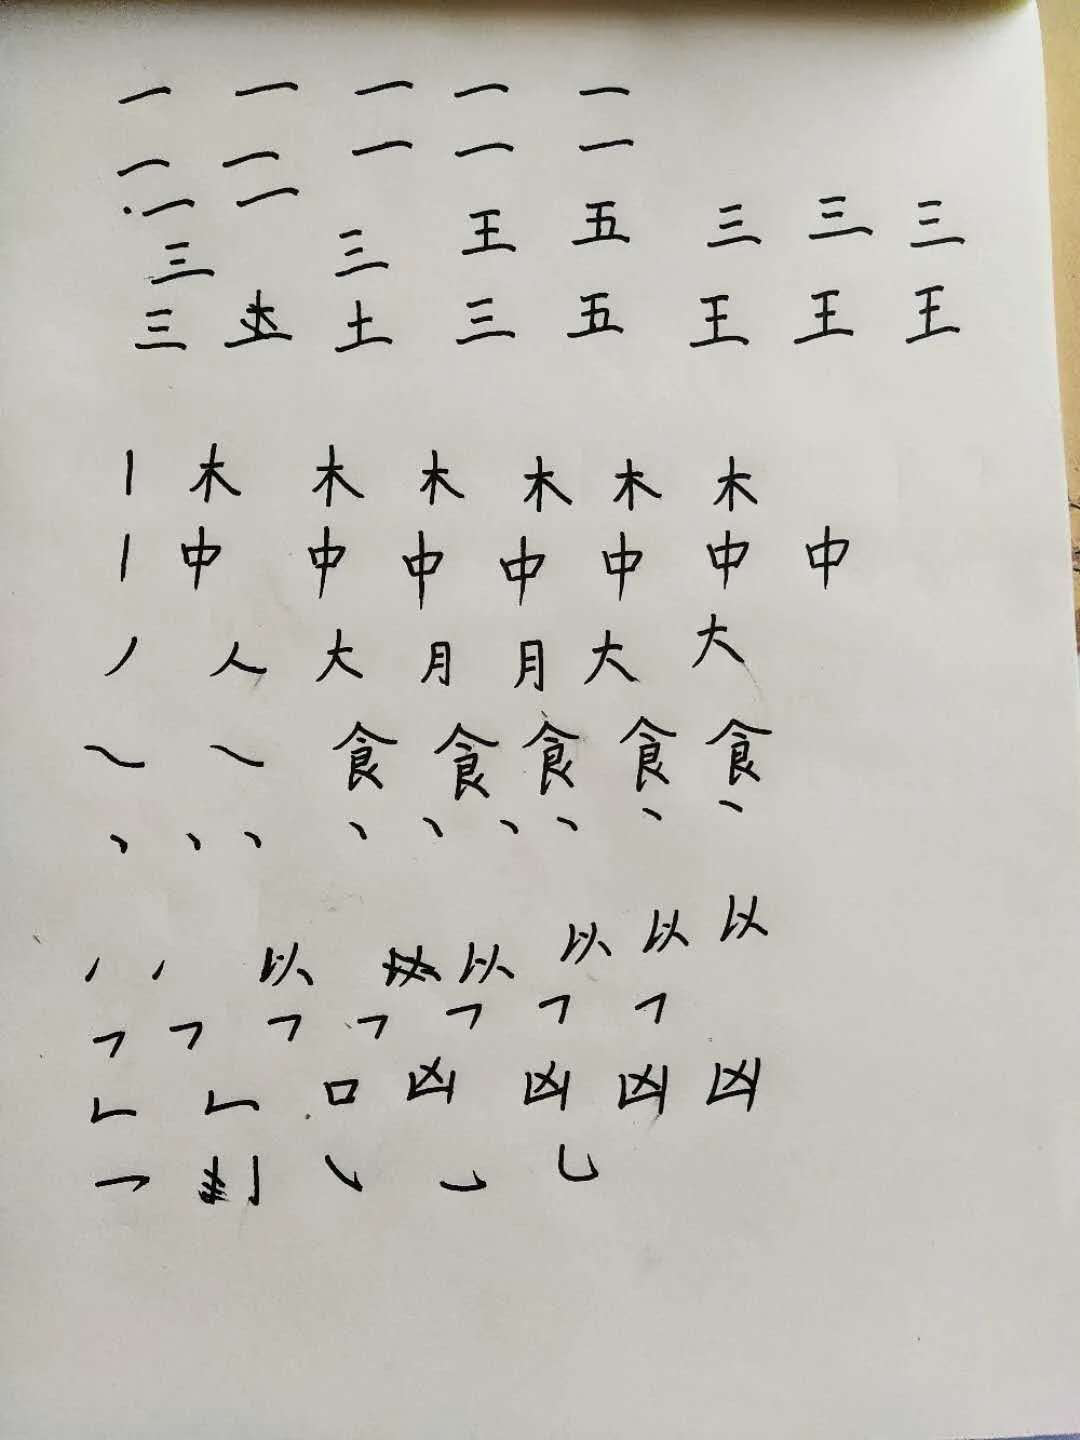 一 一 一 一 一
一 一 一 一 一
一 一
三 三 王 五 三 三 三
三 土 三 五 王 王 王
丨 木 木 木 木 木 木
丨 中 中 中 中 中 中 中
丿 人 大 月 月 大 大
㇏ ㇏ 食 食 食 食 食
丶 丶 丶 丶 丶 丶 丶 丶 丶
以 以 以 以 以
㇕ ㇕ ㇕ ㇕ ㇕ ㇕ ㇕
𠃊 𠃊 口 凶 凶 凶 凶
乛 亅 ㇂ ㇃ 乚